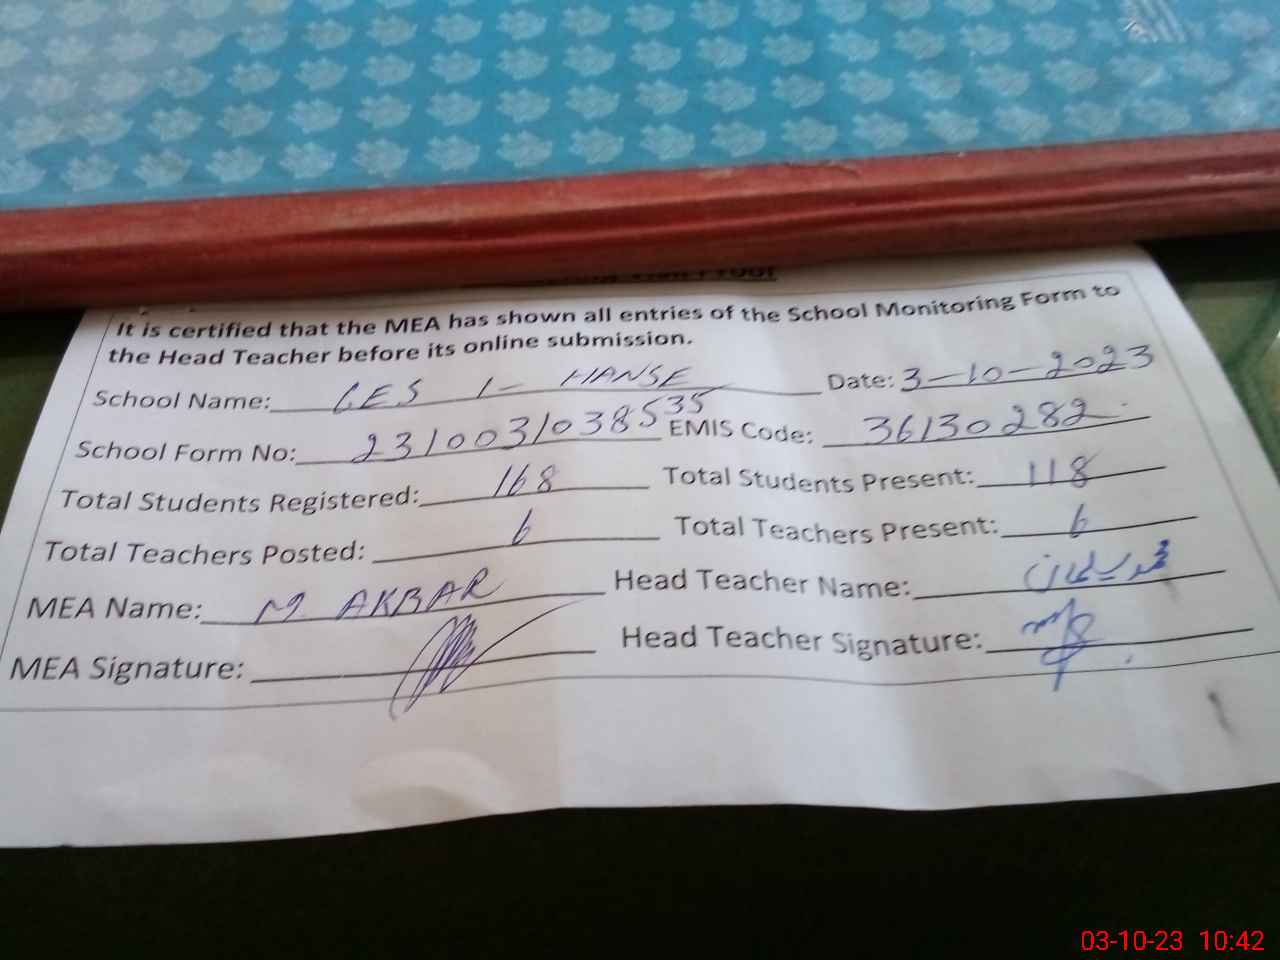 It is certified that the MEA has shown all entries of the School Monitoring Form to
the Head Teacher before its online submission.
School Name: GES 1- HANSE Date: 3-10-2023
School Form No: 2310031038535 EMIS Code: 36130282
Total Students Registered: 168 Total Students Present: 118
Total Teachers Posted: 6 Total Teachers Present: 6
MEA Name: M AKBAR Head Teacher Name: محمد سلمان
MEA Signature: Head Teacher Signature:
03-10-23 10:42